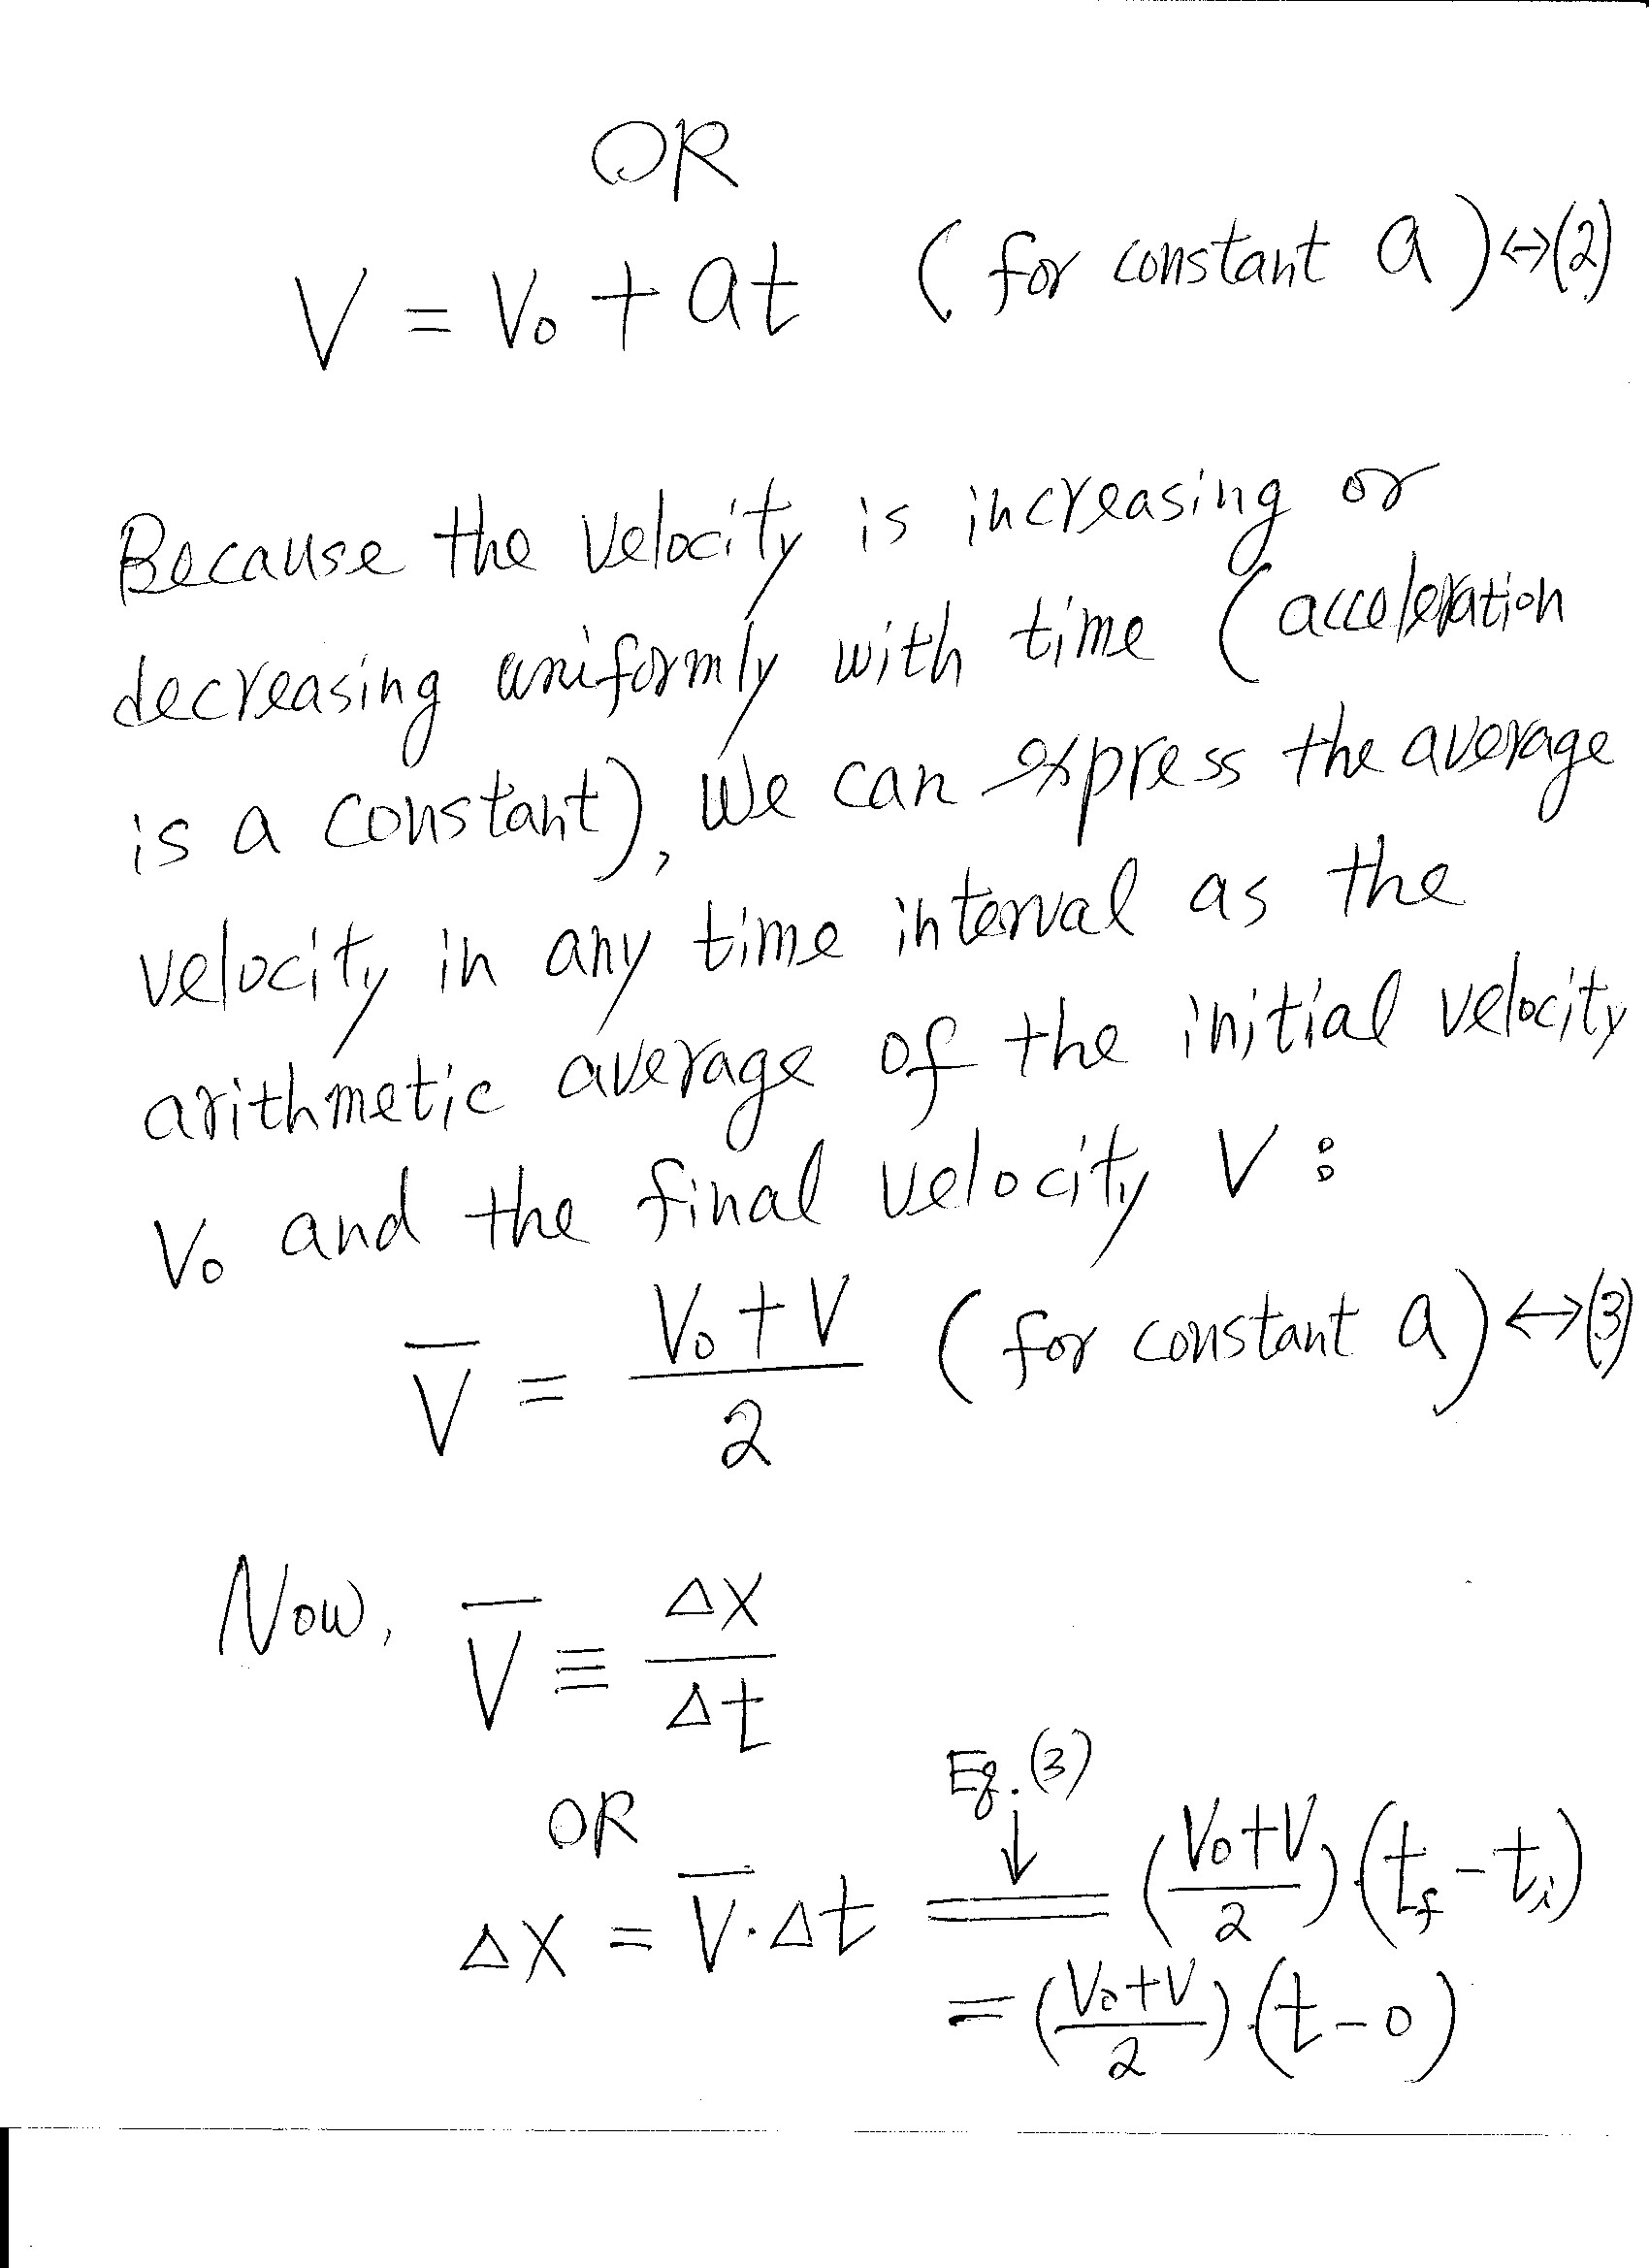 OR
V = V₀ + at (for constant a) ↔ (2)
Because the velocity is increasing or
decreasing uniformly with time (acceleration
is a constant), we can express the average
velocity in any time interval as the
arithmetic average of the initial velocity
V₀ and the final velocity V :
V̅ = (V₀ + V)/2 (for constant a) ↔ (3)
Now, V̅ ≡ Δx/Δt
Eq. (3)
OR ↓
Δx = V̅ · Δt = ((V₀+V)/2)(t_f - t_i)
= ((V₀+V)/2)(t - 0)